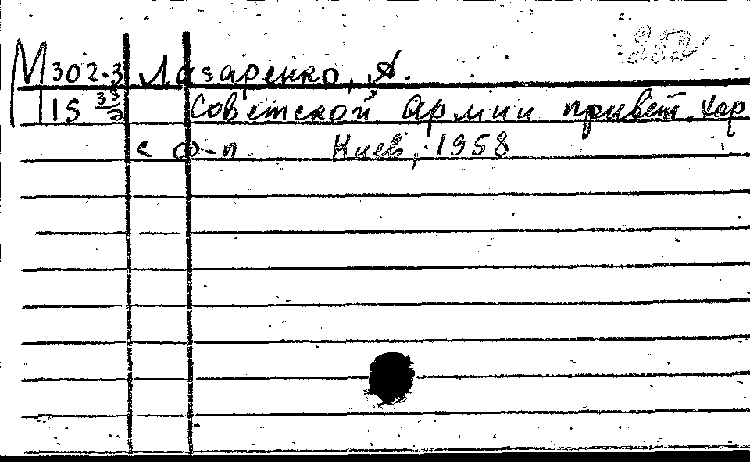 М 302-3 Лазаренко, А.
15 33/3 Советской Армии привет. Хор
с ф-п Киев, 1958